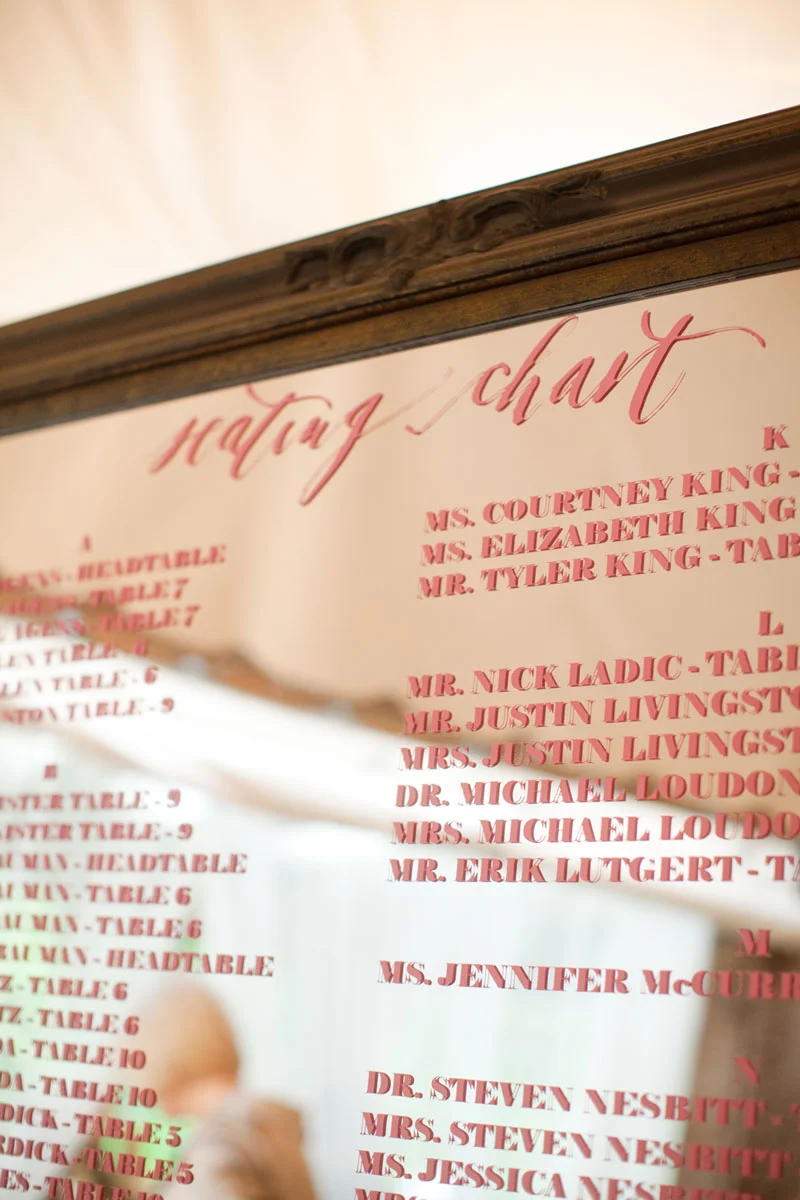 seating chart
A
AGENS - HEADTABLE
AGENS - TABLE 7
AGENS - TABLE 7
TABLE - 6
TABLE - 6
STON TABLE - 9
B
ISTER TABLE - 9
ISTER TABLE - 9
AUMAN - HEADTABLE
AUMAN - TABLE 6
AUMAN - TABLE 6
BAUMAN - HEADTABLE
Z - TABLE 6
TZ - TABLE 6
DA - TABLE 10
DA - TABLE 10
DICK - TABLE 5
RDICK - TABLE 5
ES - TABLE 10
K
MS. COURTNEY KING -
MS. ELIZABETH KING
MR. TYLER KING - TAB
L
MR. NICK LADIC - TABL
MR. JUSTIN LIVINGSTO
MRS. JUSTIN LIVINGST
DR. MICHAEL LOUDON
MRS. MICHAEL LOUDO
MR. ERIK LUTGERT - TA
M
MS. JENNIFER McCURR
N
DR. STEVEN NESBITT -
MRS. STEVEN NESBITT
MS. JESSICA NESBI